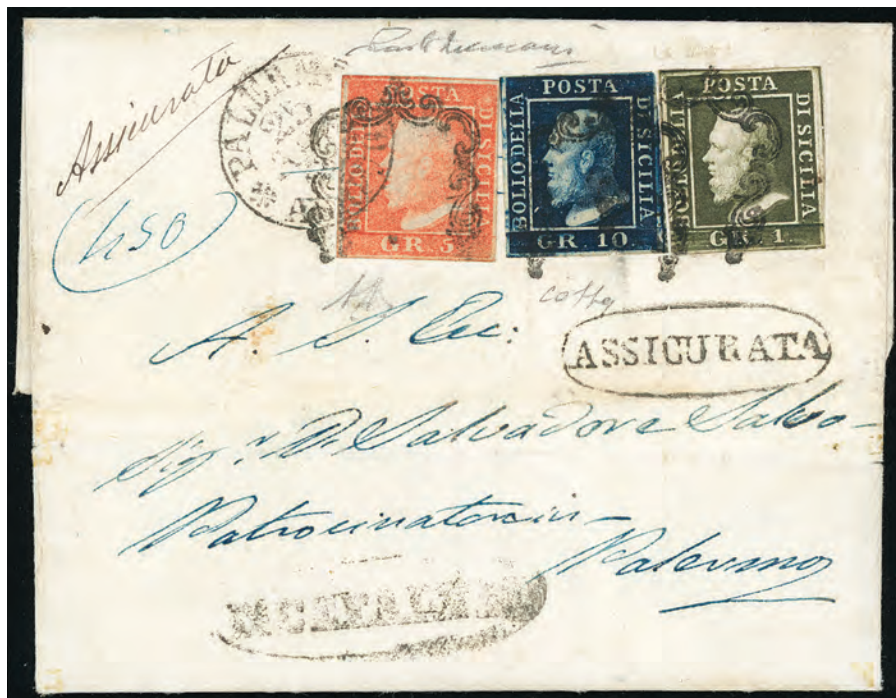 Assicurata
PALER
25
450
BOLLO DELLA POSTA DI SICILIA
GR. 5.
BOLLO DELLA POSTA DI SICILIA
GR. 10.
BOLLO DELLA POSTA DI SICILIA
GR. 1.
ASSICURATA
A. S. Ec:
Sigr. Dn. Salvadore Salvo
Patrocinatore in
Palermo